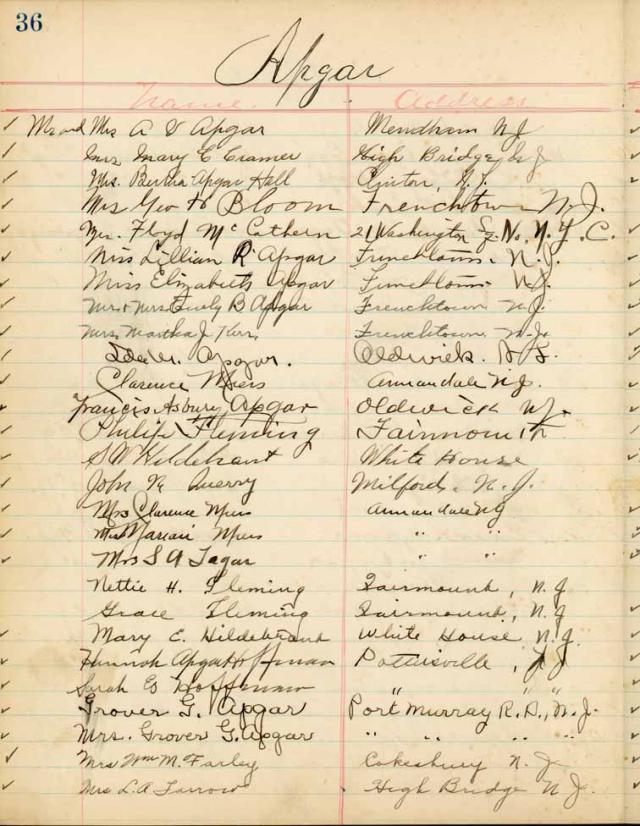 36
Apgar
Name. Address
Mr and Mrs A V Apgar Mendham NJ
Mrs Mary C Cramer High Bridge N J
Mrs. Bertha Apgar Hall Clinton, N.J.
Mrs Geo H Bloom Frenchtown N.J.
Mrs. Floyd Mc Cathern 21 Washington Sq. No. N.Y.C.
Miss Lillian R Apgar Frenchtown. N.J.
Miss Elizabeth Apgar Frenchtown N.J.
Mr & Mrs B Apgar Frenchtown N.J.
Mrs. Martha J Kerr. Frenchtown N.J.
Apgar. Oldwick. N.J.
Clarence Myers Annandale N.J.
Francis Asbury Apgar Oldwick N.J.
Philip Fleming Fairmount
S W Hildebrant White House
John R Milford. N.J.
Mrs Clarence Myers Annandale NJ
Miss Marian Myers " "
Mrs S A Tagar " "
Nettie H. Fleming Fairmount, N.J
Grace Fleming Fairmount, N.J
Mary E. Hildebrand White House N.J.
Hannah Apgar Hoffman Pottersville, N J
Sarah E Hoffman " "
Grover G. Apgar Port Murray R.D., N.J.
Mrs. Grover G. Apgar " " " "
Mrs Wm M. Farley Cokesbury N. J
Mrs L.A Farrow High Bridge N J.